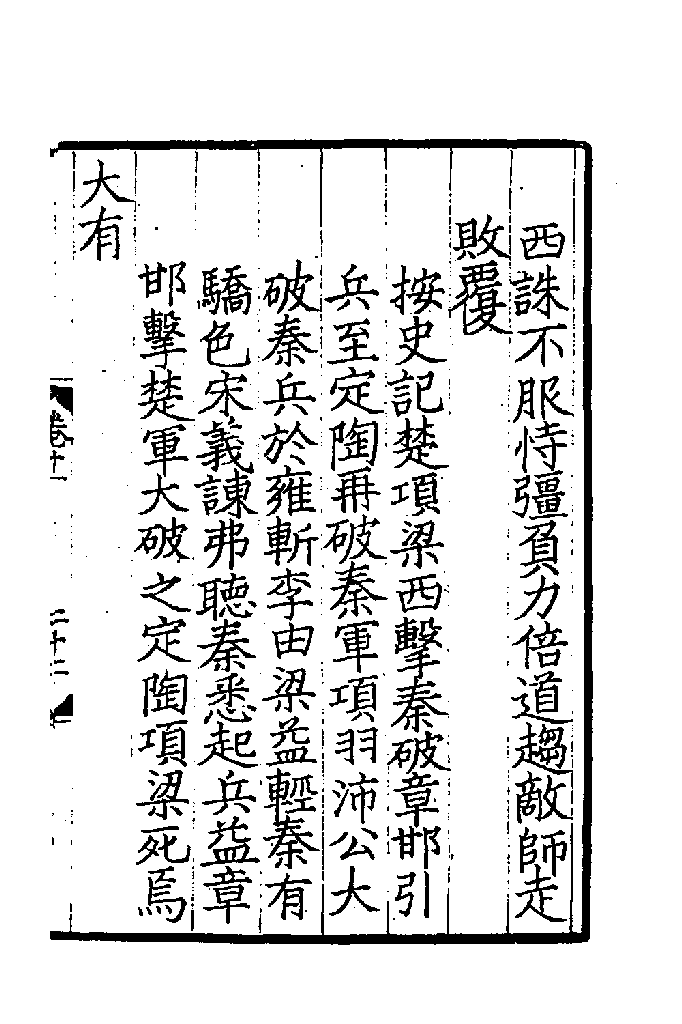 西誅不服恃彊負力倍道趨敵師走
敗覆
按史記楚項梁西擊秦破章邯引
兵至定陶再破秦軍項羽沛公大
破秦兵於雍斬李由梁益輕秦有
驕色宋義諫弗聴秦悉起兵益章
邯擊楚軍大破之定陶項梁死焉
大有
卷十一
二十二